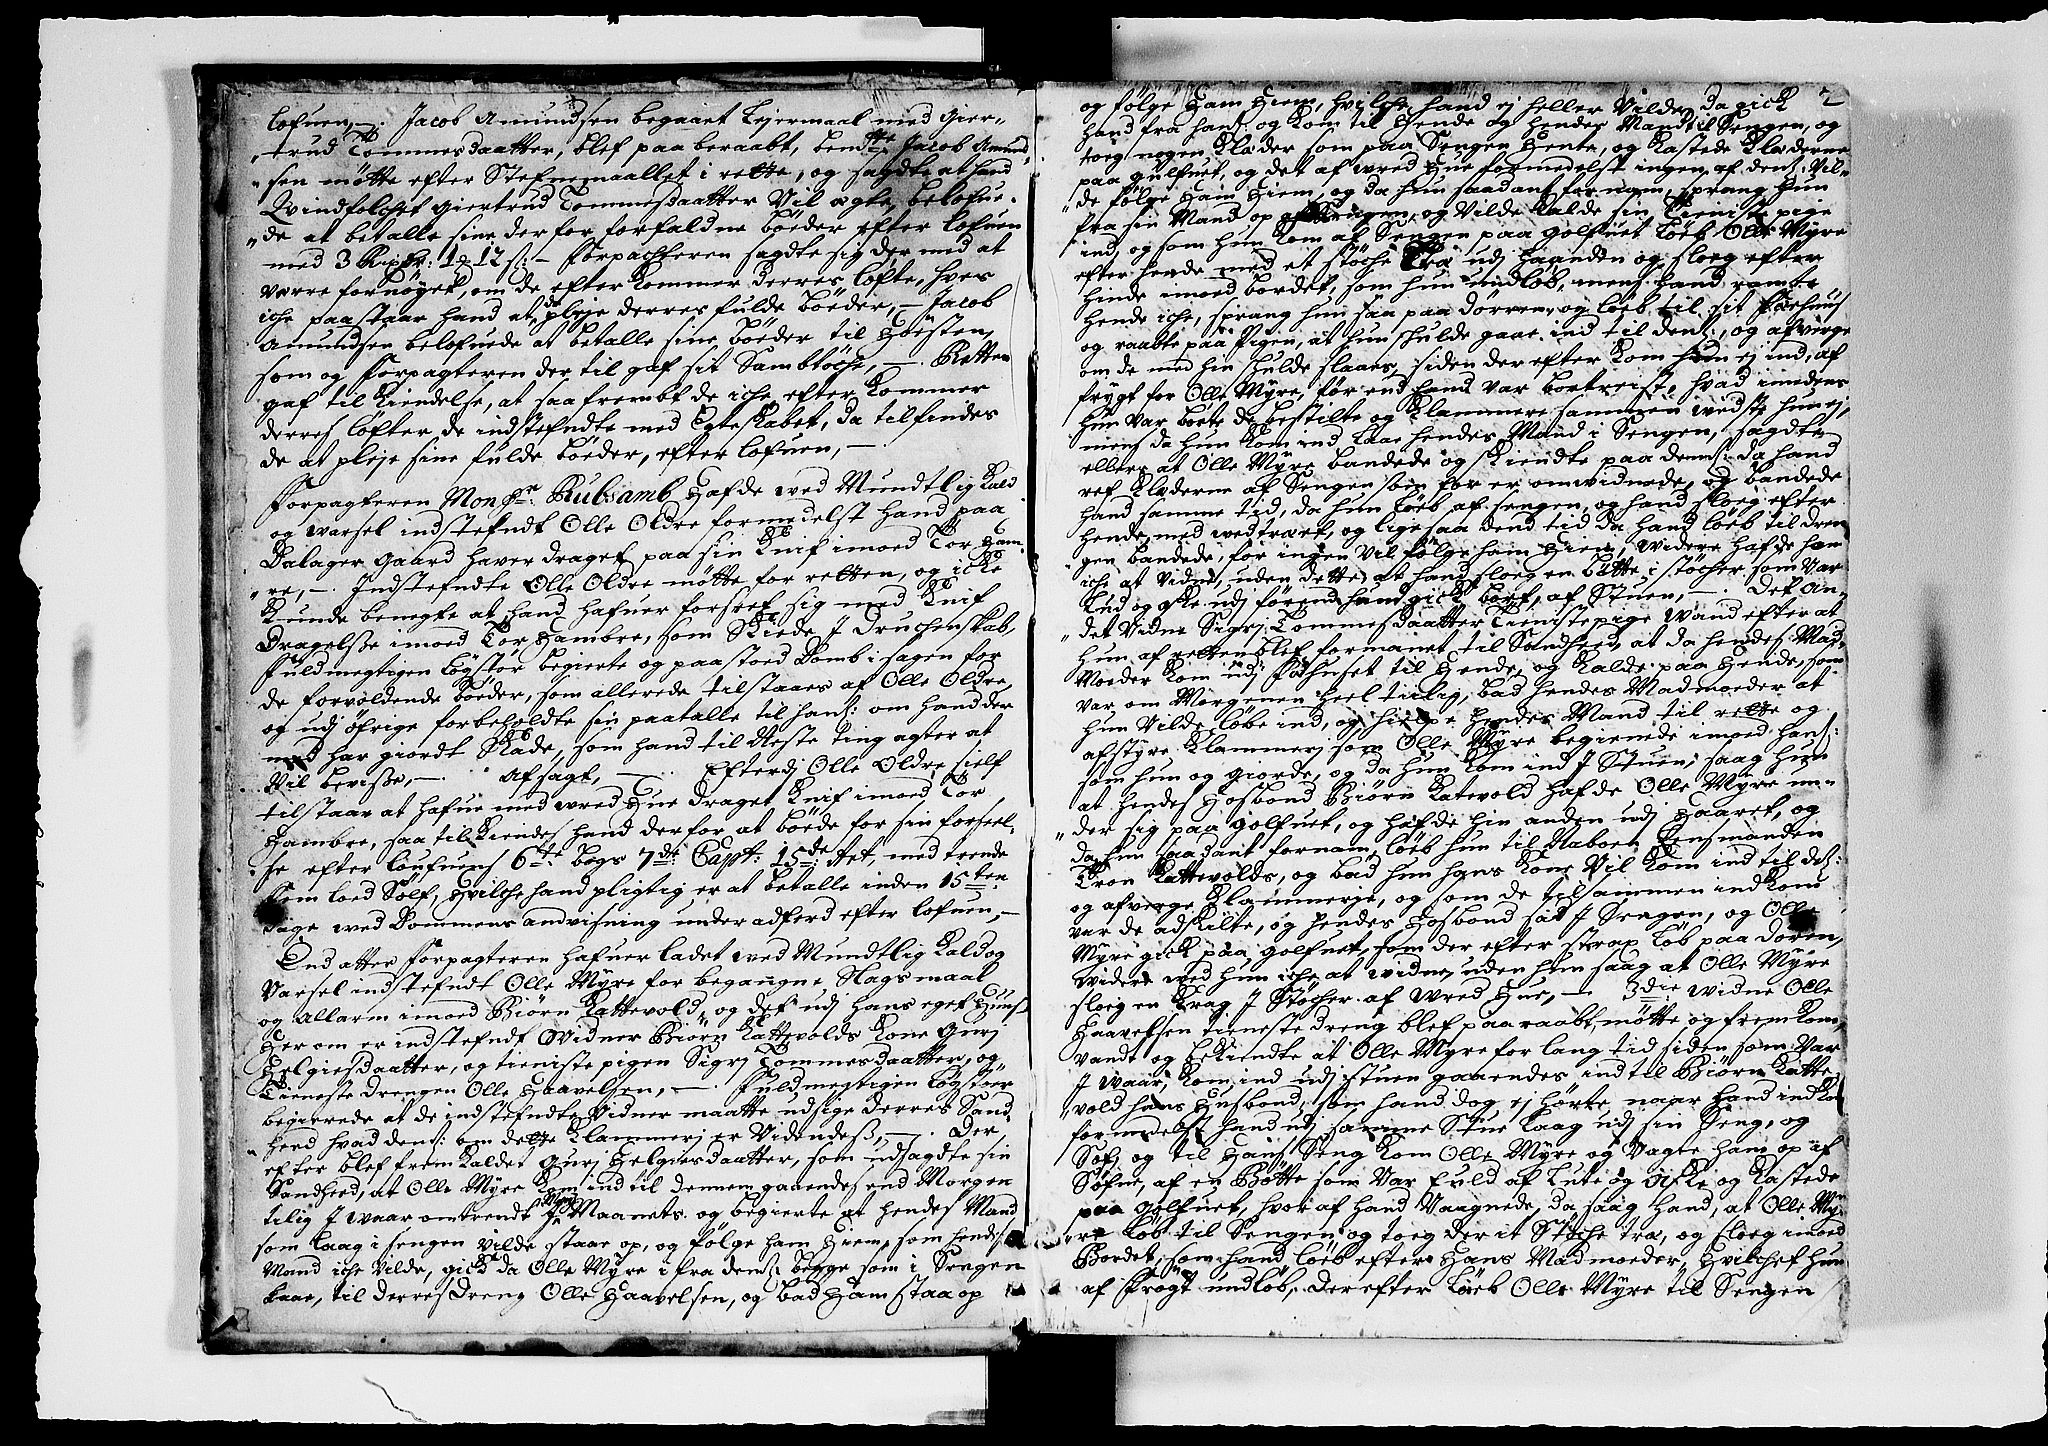 lofuen, –. Jacob Amundsen begaaet Lejermaal med Gier-
trud Tommesdaatter, blef paa beraabt, bemte Jacob Amund
sen møtte efter Stefnemaallet i rette, og sagdte at hand
Qvindfolchet Giertrud Tommesdaatter Vil ægte, belofue-
de at betalle sine derfor forfaldne bøeder efter lofuen
med 3 Rixdr: 1 12 s: – Forpachteren sagdte sig der med at
værre fornøyet, om de efterkommer derres løfte, hves
iche paastaar hand at de pleje derres fulde bøeder, – Jacob
Amundsen belofuede at betalle sine bøeder til Høsten,
som og Forpagteren der til gaf sit Sambtøche, –. Retten
gaf til Kiendelse, at saa frembt de iche efter kommer
derres løfter de indstefndte med Egteskabet, da tilfindes
de at pleje sine fulde bøeder, efter lofuen, –
Forpagteren Monsr: Rubsamb hafde ved Mundtlig Kald
og varsel indstefndt Olle Oldre formedelst hand paa
Dalager gaard haver draget paa sin Knif imoed Tor Ham-
re, –. Indstefndte Olle Oldre møtte for retten, og icke
Kunde benegte at hand hafuer forseet sig med Knif
Dragelse imoed Tor Hambre, som Skiede I Druchenskab,
Fuldmegtigen Løgstør begierte og paastoed Domb i sagen for
de forvoldende bøeder, som allerede tilstaaes af Olle Oldre,
og udj øfrige forbeholdte sin paatalle til hans: om hand der
med har giordt Skade, som hand til Neste ting agter at
Vil bevisse, –. Afsagt, –. Efterdj Olle Oldre sielf
tilstaar at hafue med vred Hue draget Knif imoed Tor
Hambre, saa tilkiendes hand derfor at bøede for sin forseel-
se efter Loufuens 6te bogs 7de Capt: 15de Art, med trende
Fem loed Sølf, hvilche hand pligtig er at betalle inden 15ten
dage ved Dommens anvisning under adferd efter lofuen, –
End atter Forpagteren hafuer ladet ved Mundtlig Kald og
Varsel indstefndt Olle Myre for begangne Slagsmaal
og Allarm imoed Biørn Kattevold, og det udj hans eget Huus
Her om er indstefndt Widner Biørn Kattevolds Kone Gurj
Helgiesdaatter, og tieniste pigen Sigrj Tommesdaatter, og
Tieneste drengen Olle Haavelsen, –. Fuldmegtigen Løgstøer
begierede at de indstefndte Vidner maatte udsige derres Sand
hed hvad dens: om dette Klammerj er Videndes, –. Der
efter blef frem kaldet Gurj Helgiesdaatter, som udsagdte sin
Sandhed, at Olle Myre Kom ind til dennem gaaendes end Morgen
tilig I waar omtrendt Maj Maanets og begierte at hendes Mand
som laag i sengen vilde staae op, og følge ham Hiem, som hendes
Mand iche vilde, gick da Olle Myre i fra dens: begge som i Sengen
laae, til derres Dreng Olle Haavelsen, og bad Ham staa op
2
og følge Ham Hiem, hvilche hand ej heller vilde, da gick
hand fra hans: og Kom til hende og hendes Mand til Sengen, og
toeg nogen Klæder som paa Sengen hente, og kastede Klæderne
paa gulfuet, og det af vred Hue formedelst ingen af dens: Vil-
de følge Ham Hiem, og da hun saadant fornam, sprang hun
fra sin Mand op af Sengen, og Vilde kalde sin tieniste pige
ind, og som hun kom af Sengen paa golfuet løeb Olle Myre
efter hende med et støche Træ udj haanden og sloeg efter
hinde imoed bordet, som hun undløb, mens hand ramte
hende iche, sprang hun saa paa dørren, og løeb til sit Fæehuus
og raabte paa Pigen, at hun shulde gaae ind til dens:, og afverge
om de med hin shulde slaaes, siden der efter kom hun ej ind, af
frygt for Olle Myre, før end hand var bortreist, hvad imidens
hun var borte de bestilte og Klammere sammen vedste hun ej,
mens da hun kom ind laae hendes Mand i Sengen, sagdte
ellers at Olle Myre bandede og skiendte paa dens: da hand
ref Klæderne af Sengen som før er omvidnede, og bandede
hand samme tid, da hun løeb af sengen, og hand sloeg efter
hende med vedtræet, og ligesaa dend tid da hand løeb til dren
gen bandede, for ingen Vil følge ham Hiem, videre hafde hun
iche at Vidne, uden dette at hand sloeg en Bøtte i støcher som Var
Lud og Aske udj førend hand gick bort, af Stuen, –. Det An-
det Vidne Sigrj Tommesdaatter Tienistepige wand efter at
hun af retten blef formanet til Sandhed, at da hendes Mad-
Moeder kom udj Fæhuset til Hende, og kalde paa Hende, som
var om Morgenen heel tilig, bad hendes Madmoeder at
hun Vilde løbe ind, og hielpe hendes Mand til rette og
afstyre Klammerj som Olle Myre begiende imoed hans:
som hun og giorde, og da hun kom ind I Stuen, saag hun
at hendes Hosbond Biørn Katevold hafde Olle Myre un-
der sig paa golfuet, og hafde hin anden udj Haaret, og
da hun saadant fornam, løeb hun til Naboen Lensmanden
Tron Kattevolds, og bad hun hans Kone Vil Kom ind til dens:
og afverge Klammerie, og som de tilsammen indkom
var de adskilte, og hendes Hosbond sat I Sengen, og Olle
Myre gick paa golfuet, som der efter strax løb paa Døren,
videre ved hun iche at vidne, uden hun saag at Olle Myre
sloeg en Krag I Støcher af vred Hue, –. 3die widne Olle
Haavelsen tieneste dreng blef paaraabt, møtte og fremkom,
vandt og bekiendte at Olle Myre for lang tid siden som Var
I Waar, Kom ind udj stuen gaaendes ind til Biørn Katte-
vold hans Husbond, som hand dog ej hørte, naar hand indkom
formedelst hand udj samme Stue laag udj sin Seng, og
Sof, og til Hans Seng kom Olle Myre og Vagte ham op af
Søfne, af en Bøtte som Var fuld af Lute og Aske og kastede
paa golfuet, hvor af hand Vaagnede, da saag Hand, at Olle My-
re løb til Sengen og toeg der it Støche træ, og sloeg imoed
Bordet, som hand løeb efter Hans Madmoeder, Hvilchet hun
af Frøgt undløb, derefter løeb Olle Myre til Sengen